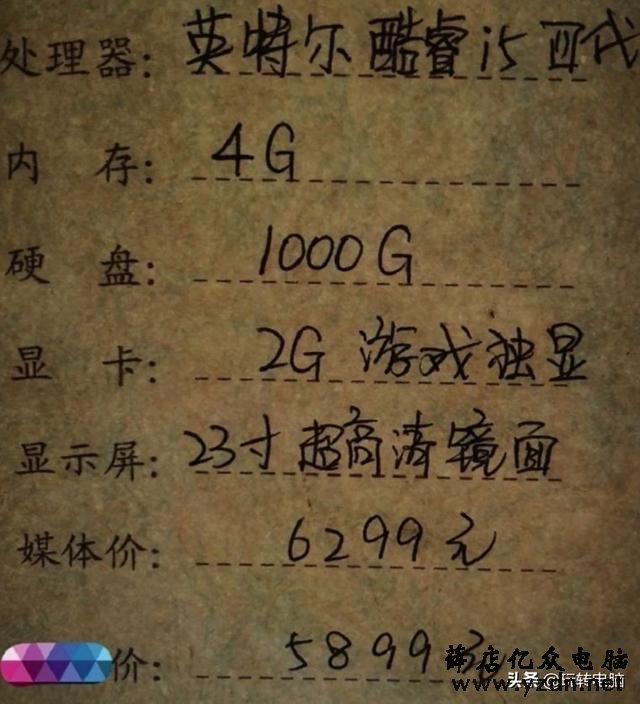 处理器: 英特尔酷睿i5四代
内存: 4G
硬盘: 1000G
显卡: 2G 游戏独显
显示屏: 23寸超高清镜面
媒体价: 6299元
价: 5899元
薛店亿众电脑
头条 @玩转电脑
www.yzdn.net